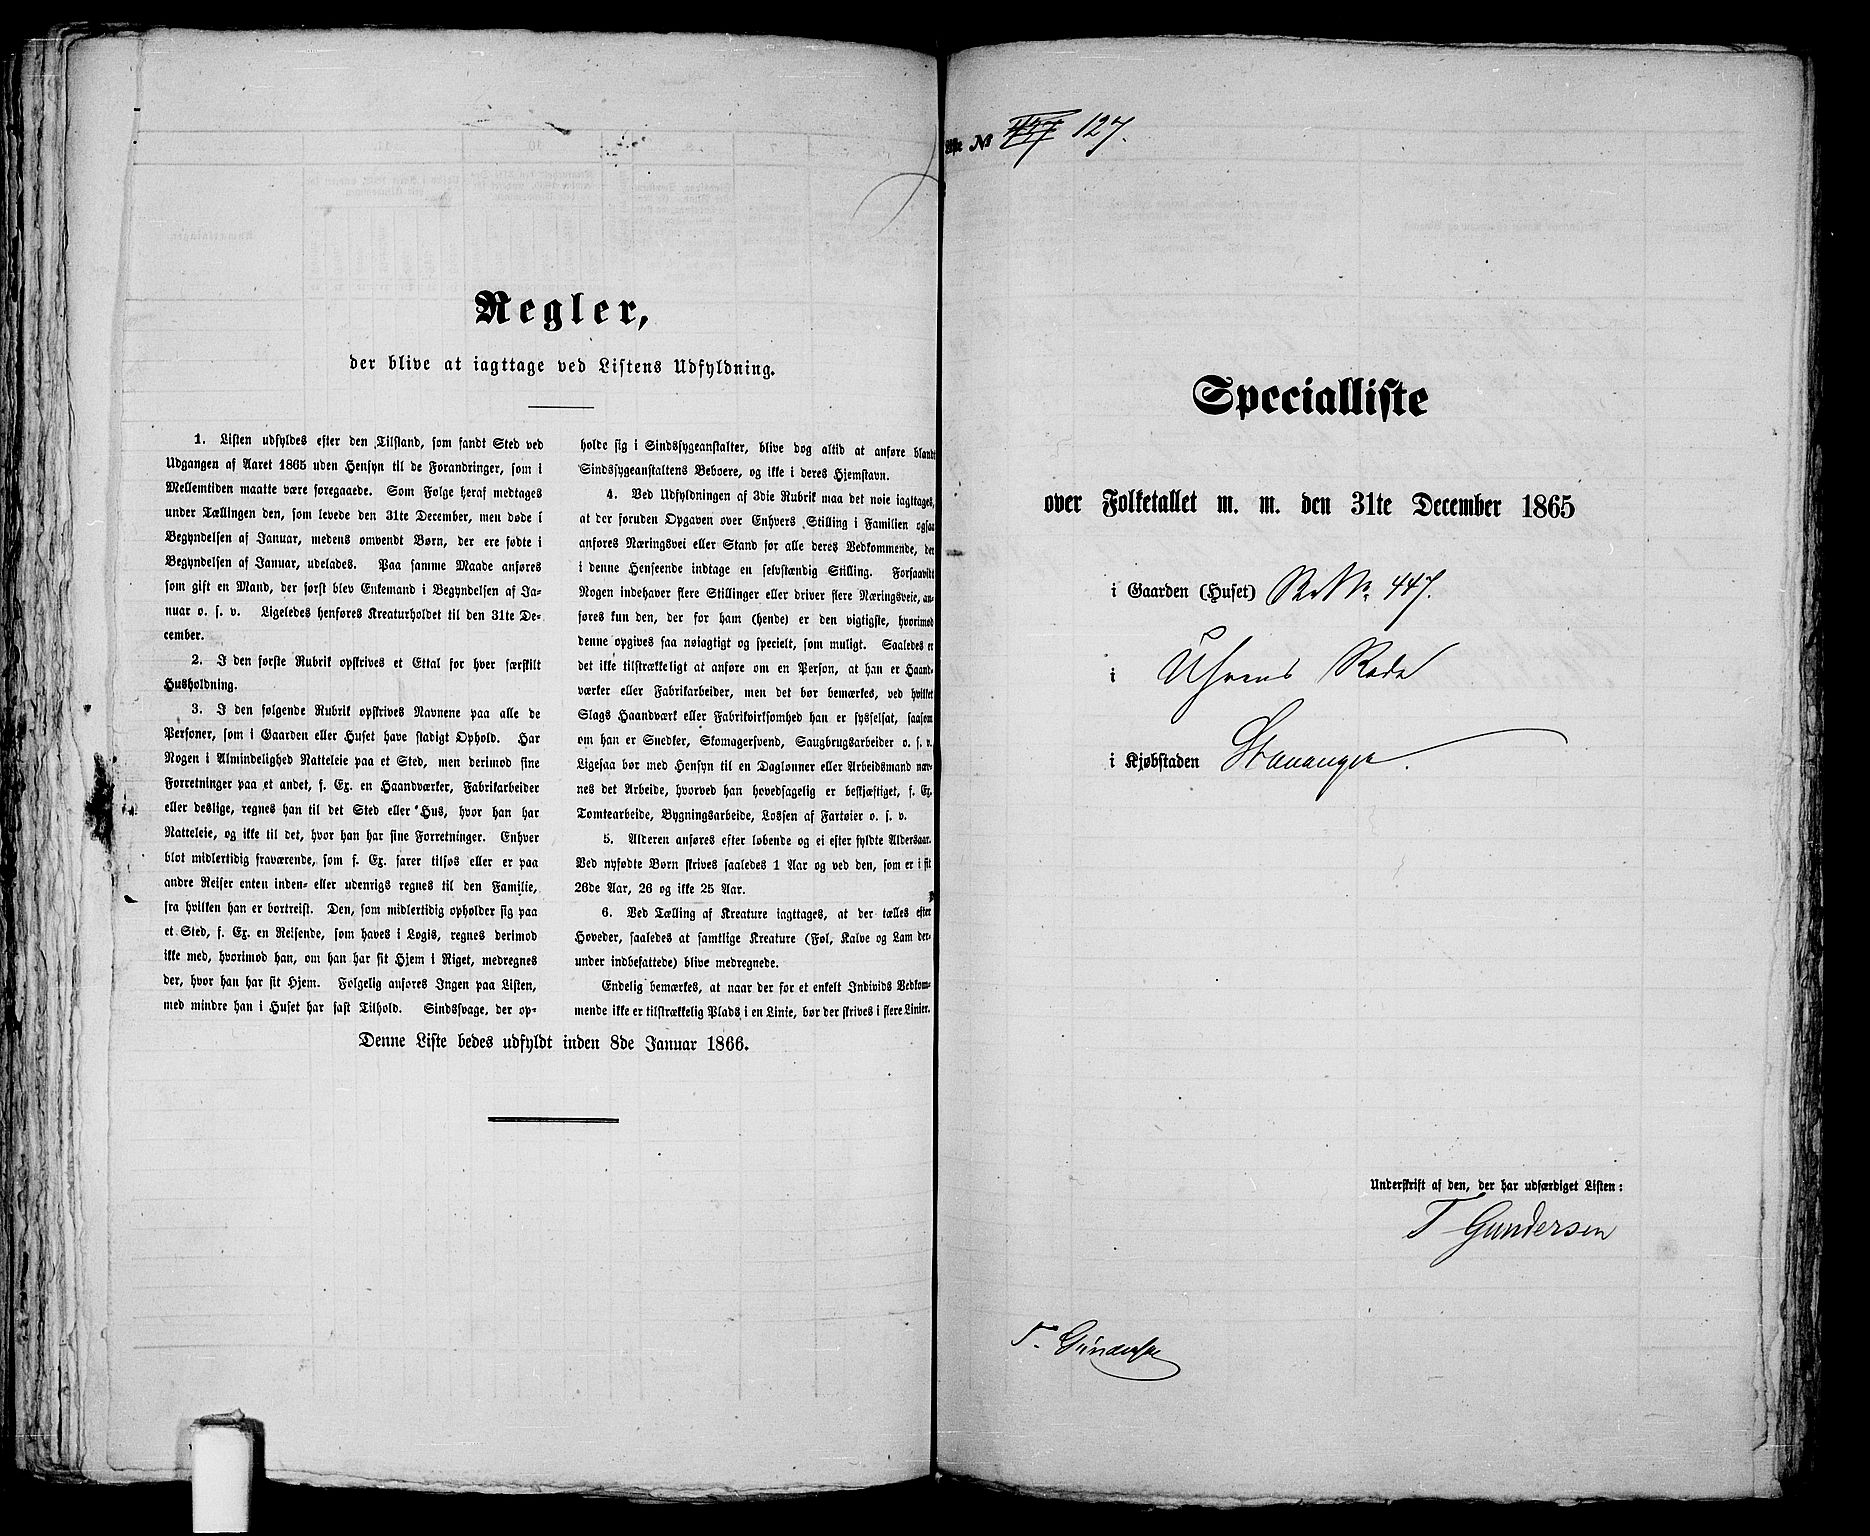 Regler,
der blive at iagttage ved Listens Udfyldning.
1. Listen udfyldes efter den Tilstand, som fandt Sted ved
Udgangen af Aaret 1865 uden Hensyn til de Forandringer, som i
Mellemtiden maatte være foregaaede. Som Følge heraf medtages
under Tællingen den, som levede den 31te December, men døde i
Begyndelsen af Januar, medens omvendt Børn, der ere fødte i
Begyndelsen af Januar, udelades. Paa samme Maade anføres
som gift en Mand, der først blev Enkemand i Begyndelsen af Ja-
nuar o. s. v. Ligeledes henføres Kreaturholdet til den 31te De-
cember.
2. I den første Rubrik opskrives et Ettal for hver særskilt
Husholdning.
3. I den følgende Rubrik opskrives Navnene paa alle de
Personer, som i Gaarden eller Huset have stadigt Ophold. Har
Nogen i Almindelighed Natteleie paa et Sted, men derimod sine
Forretninger paa et andet, f. Ex. en Haandværker, Fabrikarbeider
eller deslige, regnes han til det Sted eller Hus, hvor han har
Natteleie, og ikke til det, hvor han har sine Forretninger. Enhver
blot midlertidig fraværende, som f. Ex. farer tilsøs eller er paa
andre Reiser enten inden- eller udenrigs regnes til den Familie,
fra hvilken han er bortreist. Den, som midlertidig opholder sig paa
et Sted, f. Ex. en Reisende, som haves i Logis, regnes derimod
ikke med, hvorimod han, om han har sit Hjem i Riget, medregnes
der, hvor han har sit Hjem. Følgelig anføres Ingen paa Listen,
med mindre han i Huset har fast Tilhold. Sindssvage, der op-
holde sig i Sindssygeanstalter, blive dog altid at anføre blandt
Sindssygeanstaltens Beboere, og ikke i deres Hjemstavn.
4. Ved Udfyldningen af 3die Rubrik maa det nøie iagttages,
at der foruden Opgaven over Enhvers Stilling i Familien ogsaa
anføres Næringsvei eller Stand for alle deres Vedkommende, der
i denne Henseende indtage en selvstændig Stilling. Forsaavidt
Nogen indehaver flere Stillinger eller driver flere Næringsveie, an-
føres kun den, der for ham (hende) er den vigtigste, hvorimod
denne opgives saa nøiagtigt og specielt, som muligt. Saaledes er
det ikke tilstrækkeligt at anføre om en Person, at han er Haand-
værker eller Fabrikarbeider, men det bør bemærkes, ved hvilket
Slags Haandværk eller Fabrikvirksomhed han er sysselsat, saasom
om han er Snedker, Skomagersvend, Saugbrugsarbeider o. s. v.
Ligesaa bør med Hensyn til en Daglønner eller Arbeidsmand næv-
nes det Arbeide, hvorved han hovedsagelig er beskjæftiget, f. Ex.
Tomtearbeide, Bygningsarbeide, Lossen af Fartøier o. s. v.
5. Alderen anføres efter løbende og ei efter fyldte Aldersaar.
Ved nyfødte Børn skrives saaledes 1 Aar og ved den, som er i sit
26de Aar, 26 og ikke 25 Aar.
6. Ved Tælling af Kreature iagttages, at der tælles efter
Hoveder, saaledes at samtlige Kreature (Føl, Kalve og Lam der-
under indbefattede) blive medregnede.
Endelig bemærkes, at naar der for et enkelt Individs Vedkom-
mende ikke er tilstrækkelig Plads i en Linie, bør der skrives i flere Linier.
Denne Liste bedes udfyldt inden 8de Januar 1866.
Liste No 127.
Specialliste
over Folketallet m. m. den 31te December 1865
i Gaarden (Huset) Mt No. 447.
i Uhrens Rode
i Kjøbstaden Stavanger.
Underskrift af den, der har udfærdiget Listen:
T Gundersen
T. Gundersen